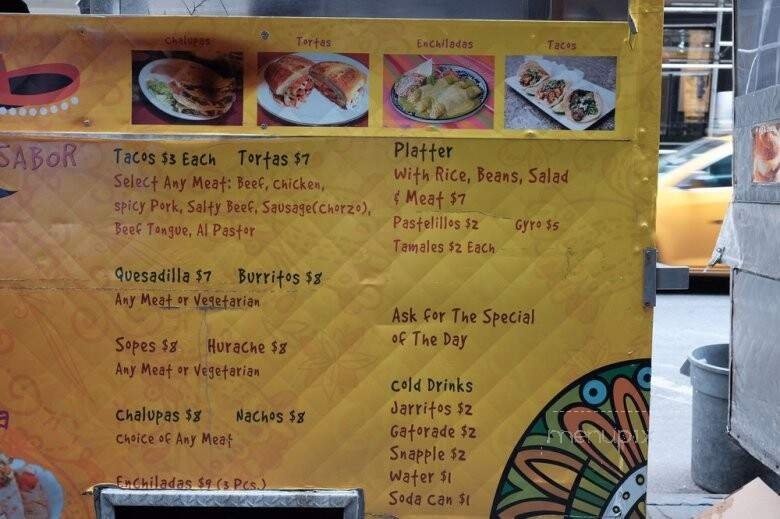 Chalupas
Tortas
Enchiladas
Tacos
SABOR
Tacos $3 Each Tortas $7
Select Any Meat: Beef, Chicken,
Spicy Pork, Salty Beef, Sausage(Chorzo),
Beef Tongue, Al Pastor
Quesadilla $7 Burritos $8
Any Meat or Vegetarian
Sopes $8 Hurache $8
Any Meat or Vegetarian
Chalupas $8 Nachos $8
Choice of Any Meat
Enchiladas $9 (3 Pcs.)
Platter
With Rice, Beans, Salad
& Meat $7
Pastelillos $2 Gyro $5
Tamales $2 Each
Ask for The Special
of The Day
Cold Drinks
Jarritos $2
Gatorade $2
Snapple $2
Water $1
Soda Can $1
menupix